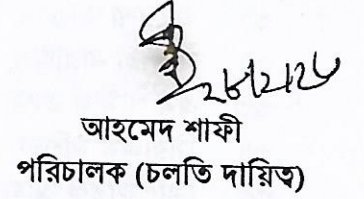 আহমেদ শাফী
পরিচালক (চলতি দায়িত্ব)